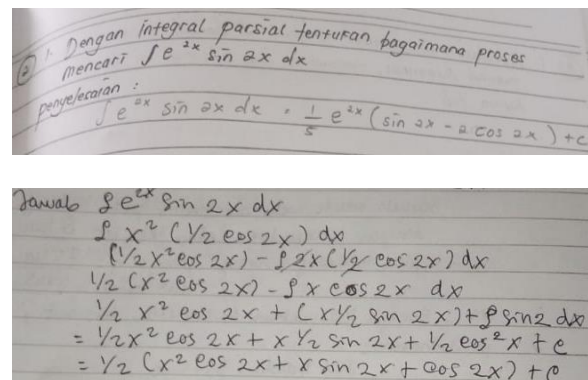 ② 1. Dengan integral parsial tentukan bagaimana proses
mencari ∫e²ˣ sin 2x dx
penyelesaian :
∫e²ˣ sin 2x dx = 1/5 e²ˣ (sin 2x - 2 cos 2x) + c
Jawab ∫e²ˣ Sin 2x dx
∫ x² (1/2 cos 2x) dx
(1/2 x² cos 2x) - ∫ 2x (1/2 cos 2x) dx
1/2 (x² cos 2x) - ∫ x cos 2x dx
1/2 x² cos 2x + (x 1/2 sin 2x) + ∫ sin 2 dx
= 1/2 x² cos 2x + x 1/2 Sin 2x + 1/2 cos² x + c
= 1/2 (x² cos 2x + x Sin 2x + cos 2x) + c